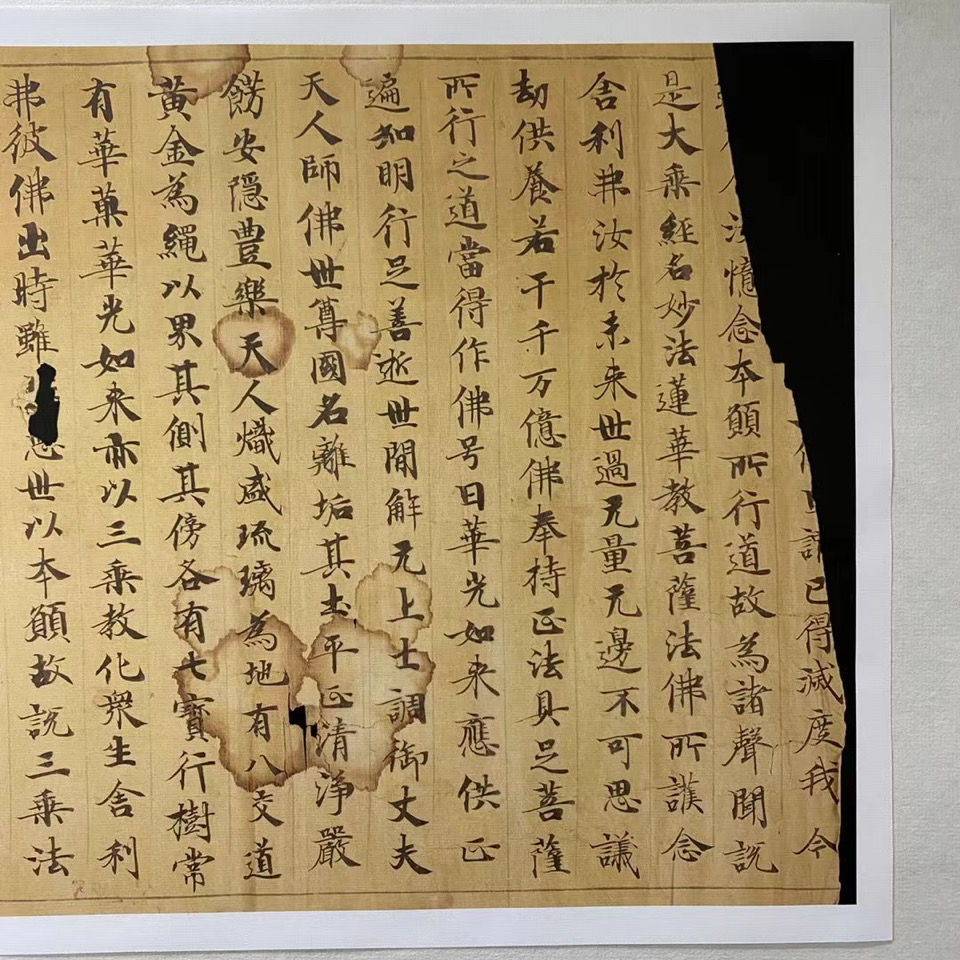 便自謂已得滅度我今
汝憶念本願所行道故為諸聲聞説
是大乘經名妙法蓮華教菩薩法佛所護念
舍利弗汝於未来世過无量无邊不可思議
劫供養若干千万億佛奉持正法具足菩薩
所行之道當得作佛号曰華光如来應供正
遍知明行足善逝世間解无上士調御丈夫
天人師佛世尊國名離垢其土平正清淨嚴
餝安隱豊樂天人熾盛琉璃為地有八交道
黃金為繩以界其側其傍各有七寶行樹常
有華菓華光如来亦以三乘教化衆生舍利
弗彼佛出時雖惡世以本願故説三乘法